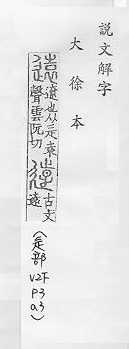 說文解字
大徐本
遠遼也从辵袁
聲雲阮切𢕱古文
遠
(辵部
V2下
P3
a3)